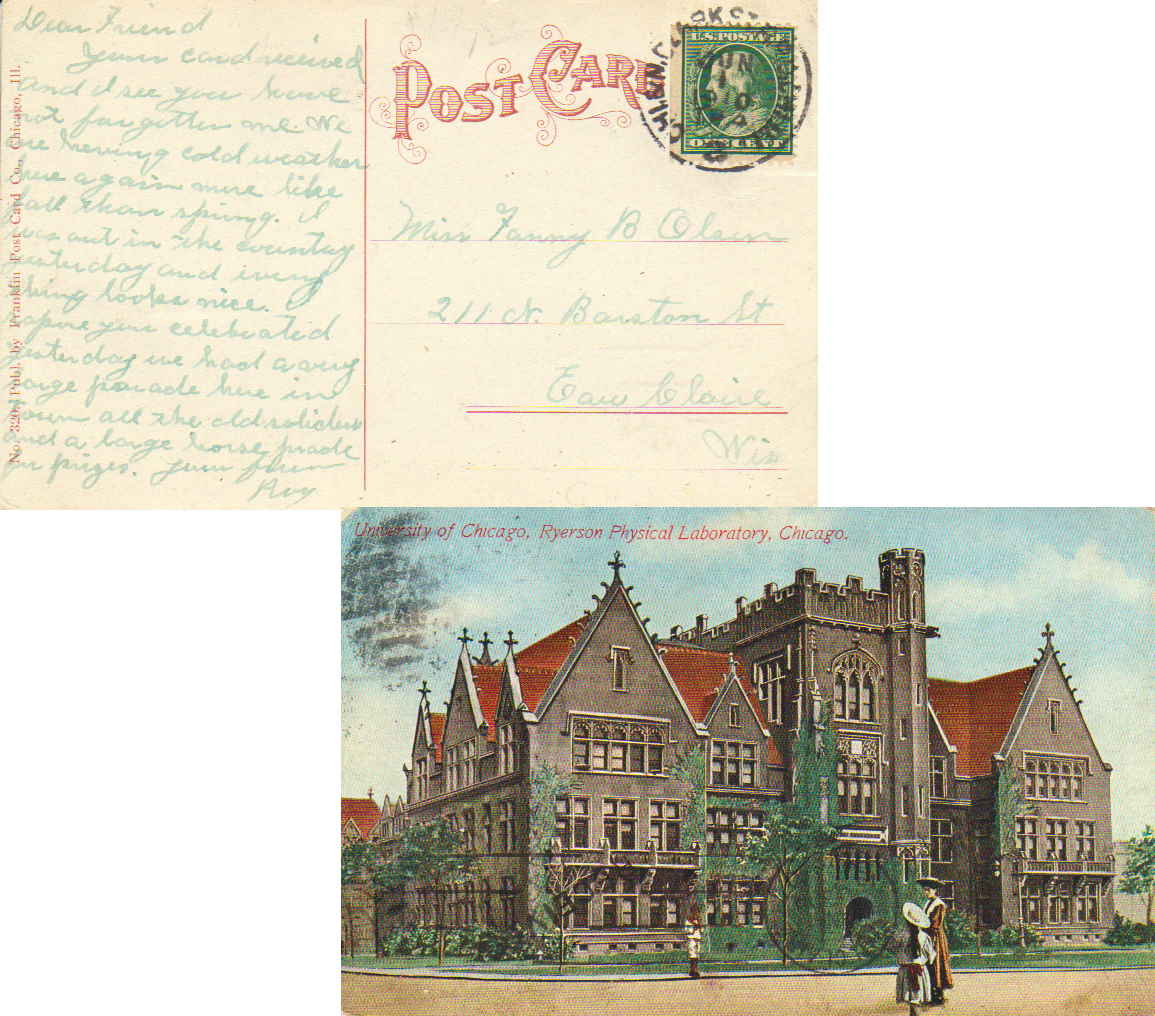 Dear Friend
Your card received
and I see you have
not forgotten me. We
are having cold weather
here again more like
fall than spring. I
was out in the country
yesterday and every
thing looks nice. I
you celebrated
yesterday we had a very
large parade here in
town all the old soliders
and a large horse prade
for prizes. Your
Roy
No. 320. Publ. by Franklin Post Card Co., Chicago, Ill.
POST CARD
U.S. POSTAGE
ONE CENT
CLARK ST.
JUN
Miss Fanny B Olsen
211 N. Barston St
Eau Claire
Wis
University of Chicago, Ryerson Physical Laboratory, Chicago.